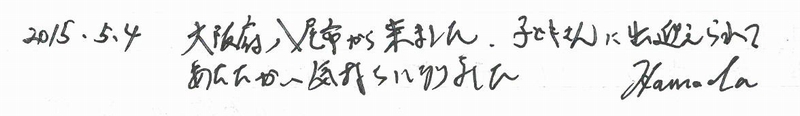 2015.5.4 大阪府八尾市から来ました. 子どもさんに出迎えられて
あたたかい気持ちになりました Hamada